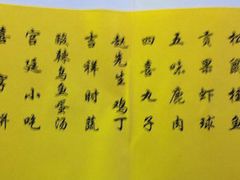 松鼠桂鱼
贡果虾球
五味鹿肉
四喜丸子
赵先生鸡丁
吉祥时蔬
酸辣乌鱼蛋汤
宫廷小吃